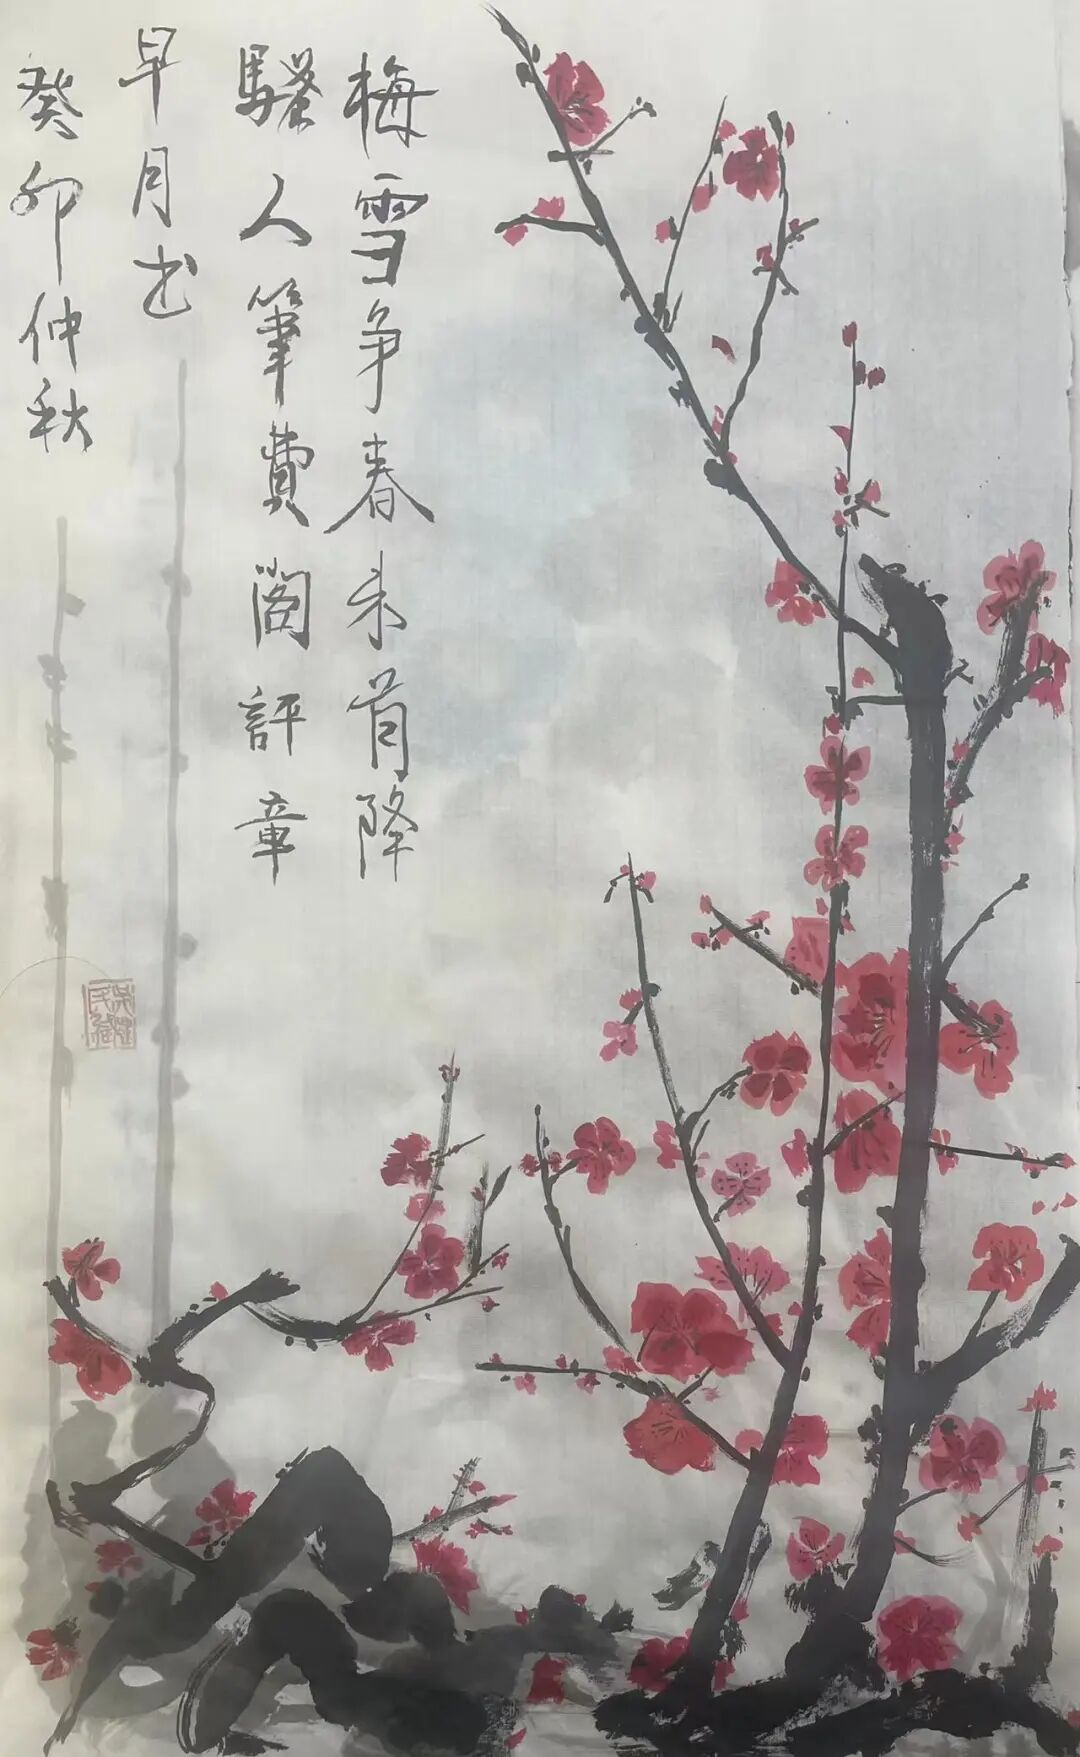 梅雪争春未肯降
騷人筆費閣評章
早月出
癸卯仲秋